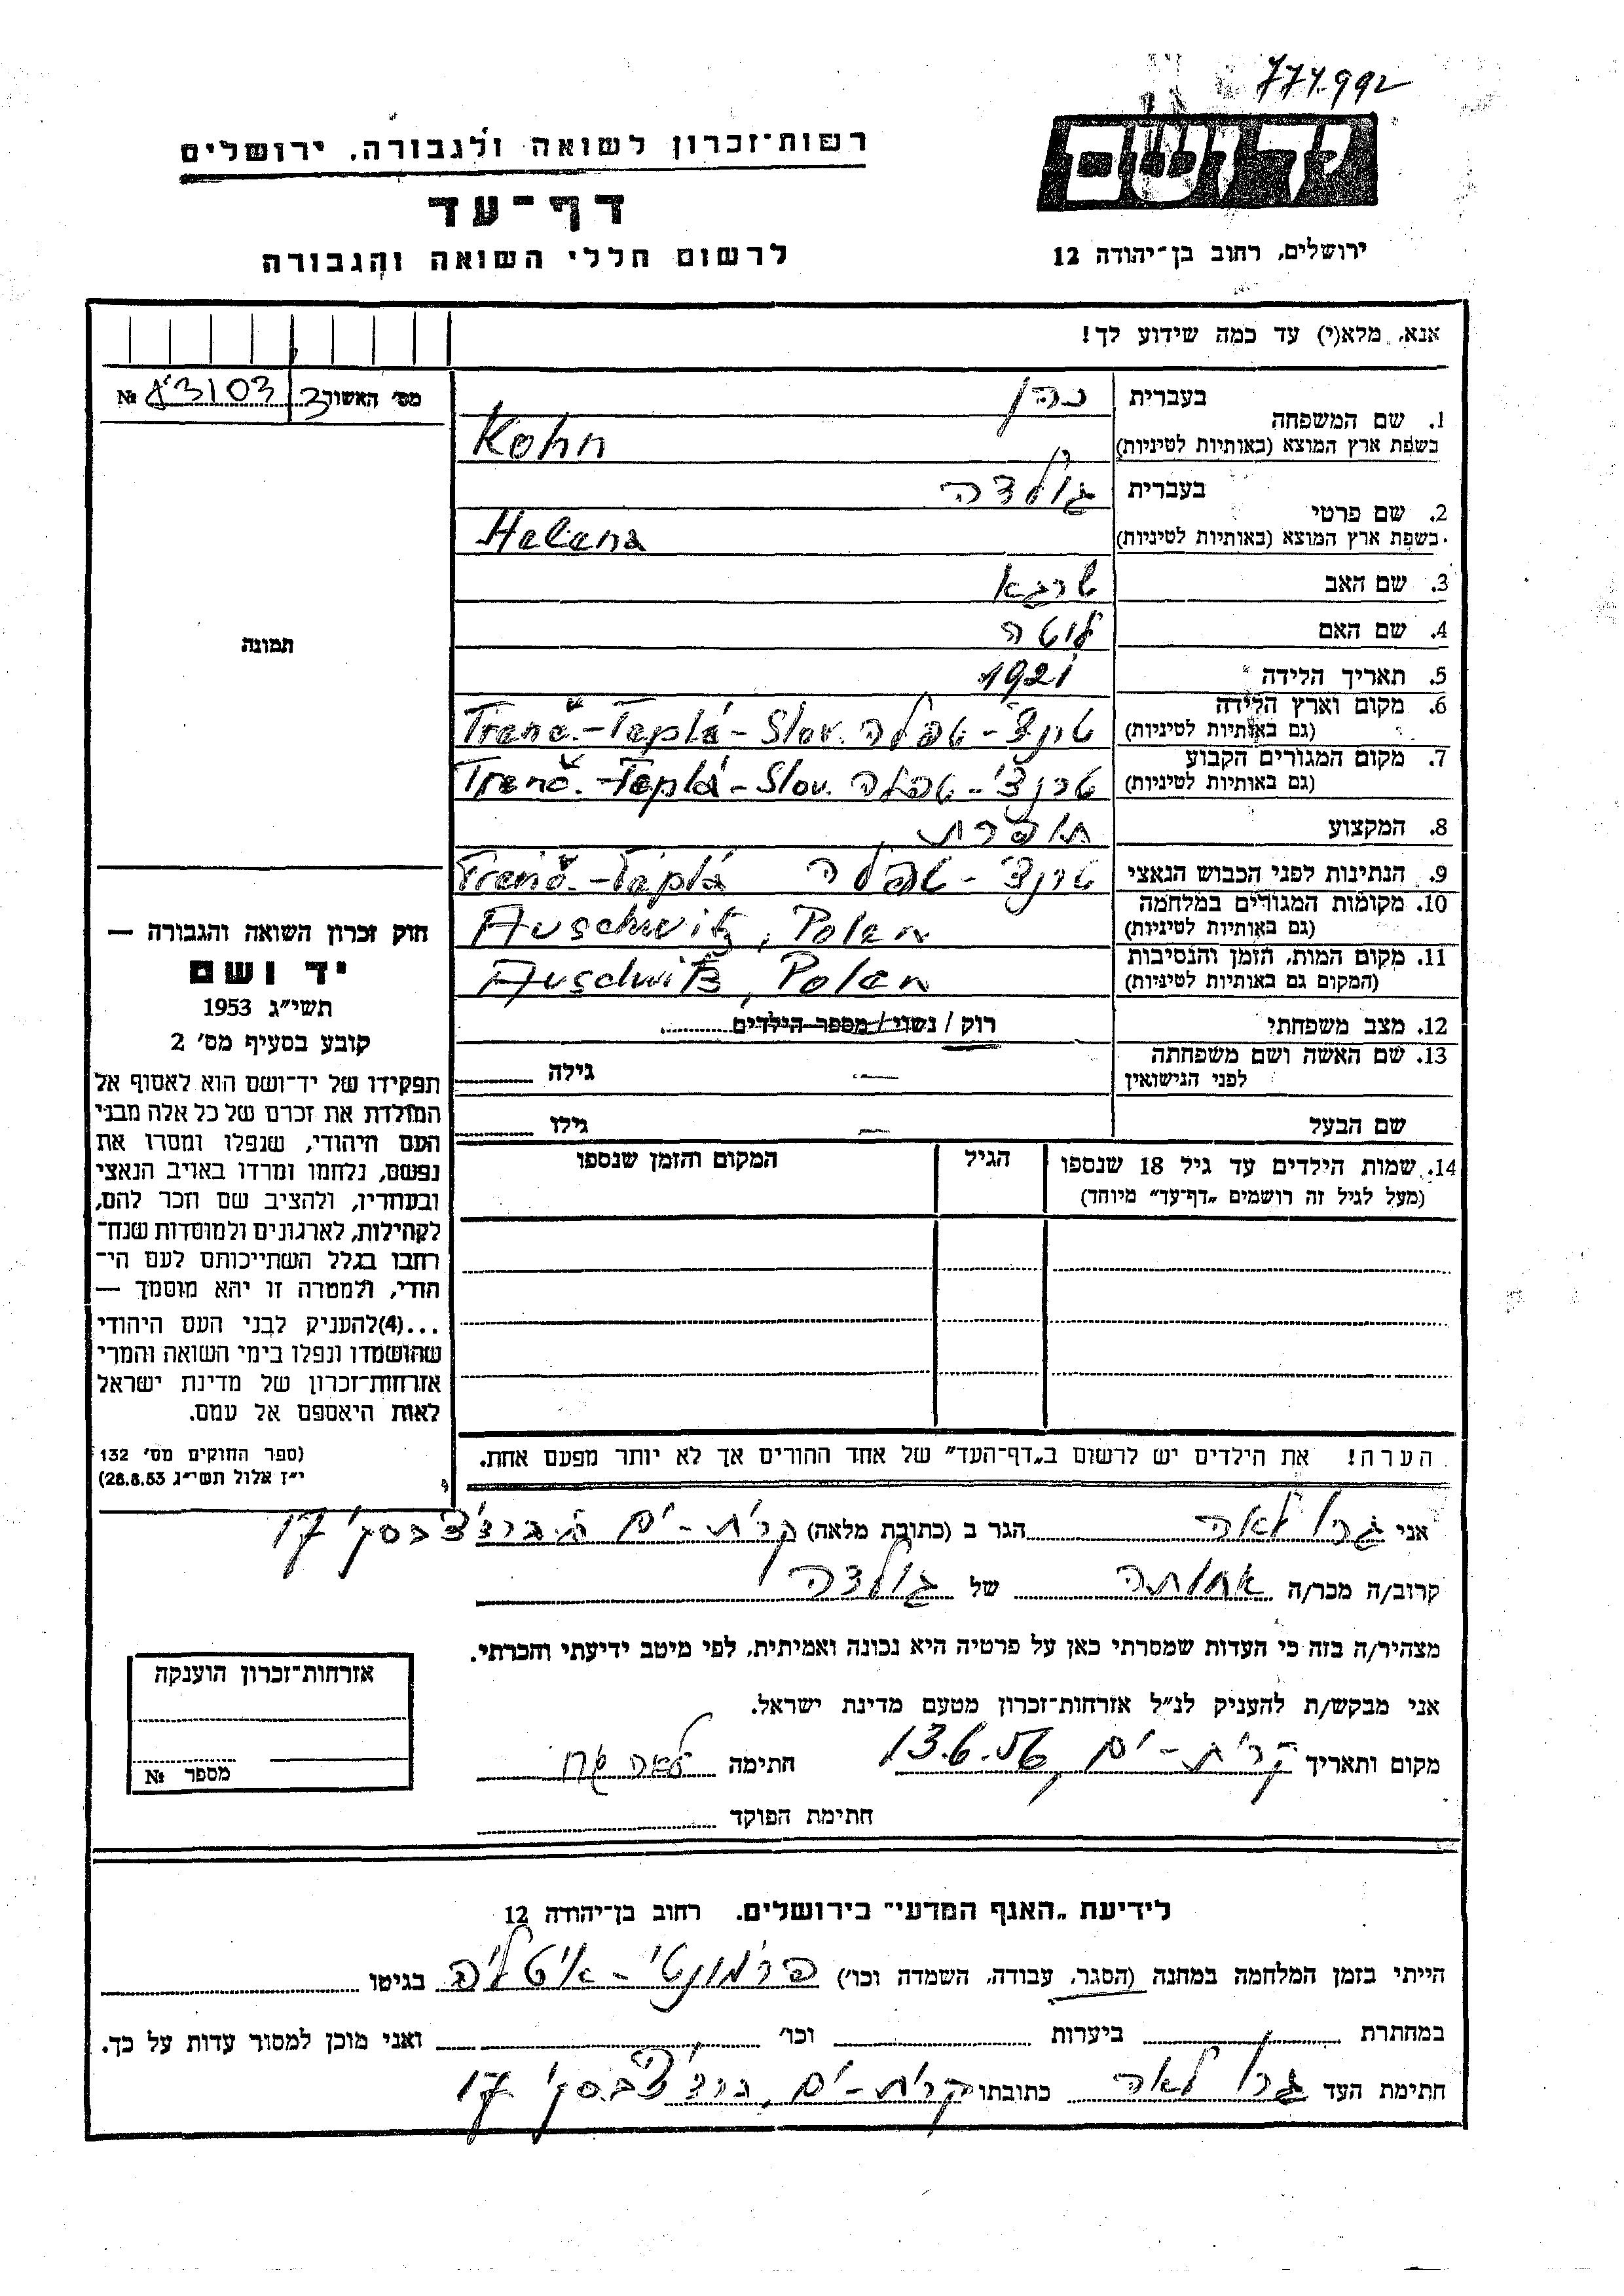 771992
יד ושם
רשות־זכרון לשואה ולגבורה, ירושלים
דף־עד
לרשום חללי השואה והגבורה
ירושלים, רחוב בן־יהודה 12
אנא, מלא(י) עד כמה שידוע לך!
מס' האשור №
1. שם המשפחה
בעברית כהן
בשפת ארץ המוצא (באותיות לטיניות) Kohn
2. שם פרטי
בעברית גולדה
בשפת ארץ המוצא (באותיות לטיניות) Helena
3. שם האב שרגא
4. שם האם
5. תאריך הלידה 1921
6. מקום וארץ הלידה
(גם באותיות לטיניות) טרנצ'-טפלה Trenč.-Teplá-Slov.
7. מקום המגורים הקבוע
(גם באותיות לטיניות) טרנצ'-טפלה Trenč.-Teplá-Slov.
8. המקצוע תופרת
9. הנתינות לפני הכבוש הנאצי טרנצ'-טפלה Trenč.-Teplá
10. מקומות המגורים במלחמה
(גם באותיות לטיניות) Auschwitz, Polen
11. מקום המות, הזמן והנסיבות
(המקום גם באותיות לטיניות) Auschwitz, Polen
12. מצב משפחתי רוק / נשוי / מספר הילדים
13. שם האשה ושם משפחתה
לפני הנישואין — גילה
שם הבעל — גילו
14. שמות הילדים עד גיל 18 שנספו הגיל המקום והזמן שנספו
(מעל לגיל זה רושמים „דף־עד" מיוחד)
הערה! את הילדים יש לרשום ב„דף־העד" של אחד ההורים אך לא יותר מפעם אחת.
תמונה
חוק זכרון השואה והגבורה —
יד ושם
תשי"ג 1953
קובע בסעיף מס' 2
תפקידו של יד־ושם הוא לאסוף אל
המולדת את זכרם של כל אלה מבני
העם היהודי, שנפלו ומסרו את
נפשם, נלחמו ומרדו באויב הנאצי
ובעוזריו, ולהציב שם וזכר להם,
לקהילות, לארגונים ולמוסדות שנח־
רחבו בגלל השתייכותם לעם הי־
הודי, ולמטרה זו יהא מוסמך —
...(4)להעניק לבני העם היהודי
שהושמדו ונפלו בימי השואה והמרי
אזרחות־זכרון של מדינת ישראל
לאות היאספם אל עמם.
(ספר החוקים מס' 132
י"ז אלול תשי"ג 28.8.53)
אני לאה הגר ב (כתובת מלאה) קרית-ים 17
קרוב/ה מכר/ה אחותה של גולדה
מצהיר/ה בזה כי העדות שמסרתי כאן על פרטיה היא נכונה ואמיתית, לפי מיטב ידיעתי והכרתי.
אני מבקש/ת להעניק לנ"ל אזרחות־זכרון מטעם מדינת ישראל.
מקום ותאריך קרית-ים 13.6.56 חתימה לאה
חתימת הפוקד
אזרחות־זכרון הוענקה
מספר №
לידיעת „האגף המדעי" בירושלים, רחוב בן־יהודה 12
הייתי בזמן המלחמה במחנה (הסגר, עבודה, השמדה וכו') פרמונטי-איטליה בגיטו
במחתרת ביערות וכו' ואני מוכן למסור עדות על כך.
חתימת העד לאה כתובתו קרית-ים, 17